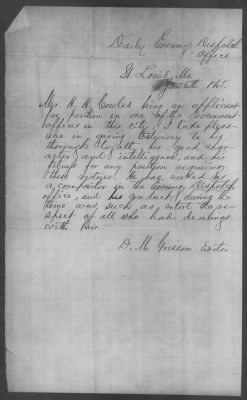 Daily Evening Dispatch
Office
St. Louis, Mo
Jan 6th 1865.
Mr. H. H. Cowles being an applicant
for position in one of the Government
offices in this city, I take pleas-
ure in giving testimony to his
thorough loyalty, his good char-
acter, and intelligence, and his
fitness for any position requiring
these virtues. He has worked as
a compositor in the Evening Dispatch
office, and his conduct during the
time was such as, extort the re-
spect of all who had dealings
with him
D. M. Grissom Editor